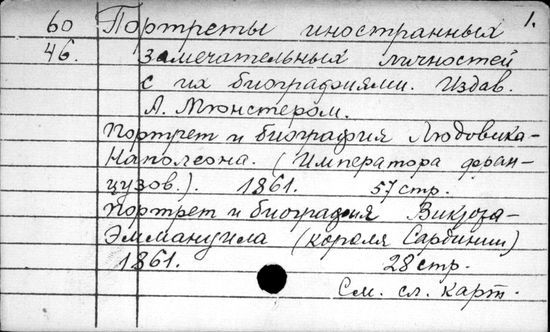 60 Портреты иностранных 1.
46. замечательных личностей
с их биографиями. Издав.
А. Мюнстером.
Портрет и биография Людовика-
Наполеона. (Императора фран-
цузов.). 1861. 57 стр.
Портрет и биография Виктора-
Эммануила (короля Сардинии)
1861. 28 стр.
См. сл. карт.